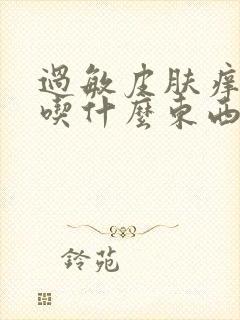 過敏皮肤痒
喫什麼東西
鈴苑